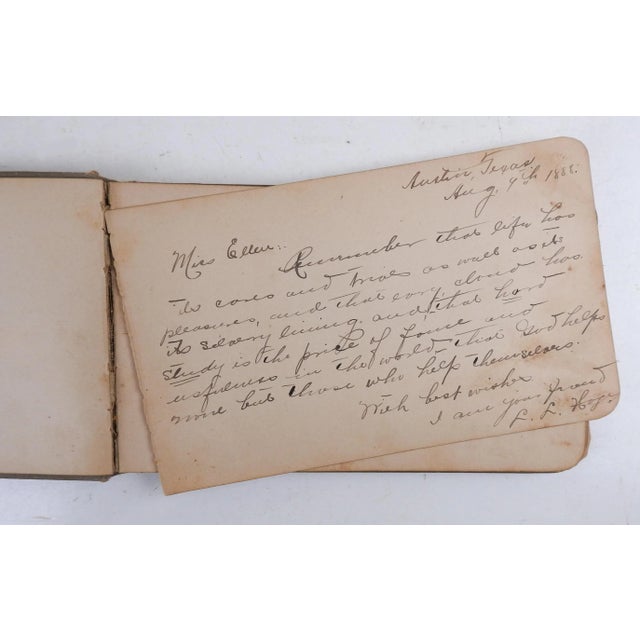 Austin, Texas
Aug. 9th 1888.
Miss Ellen:
Remember that life has
its cares and trials as well as its
pleasures, and that every cloud has
its silvery lining, and that hard
study is the price of fame and
usefulness in the world, that God helps
none but those who help themselves.
With best wishes
I am your friend
L. L.